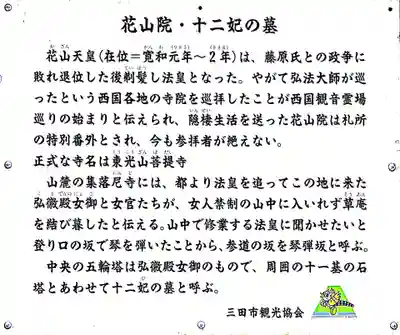 花山院・十二妃の墓
花山天皇(在位=寛和元年~2年)は、藤原氏との政争に
敗れ退位した後剃髪し法皇となった。やがて弘法大師が巡
ったという西国各地の寺院を巡拝したことが西国観音霊場
巡りの始まりと伝えられ、隠棲生活を送った花山院は札所
の特別番外とされ、今も参拝者が絶えない。
正式な寺名は東光山菩提寺
山麓の集落尼寺には、都より法皇を追ってこの地に来た
弘徽殿女御と女官たちが、女人禁制の山中に入いれず草庵
を結び暮したと伝える。山中で修業する法皇に聞かせたいと
登り口の坂で琴を弾いたことから、参道の坂を琴弾坂と呼ぶ。
中央の五輪塔は弘徽殿女御のもので、周囲の十一基の石
塔とあわせて十二妃の墓と呼ぶ。
三田市観光協会